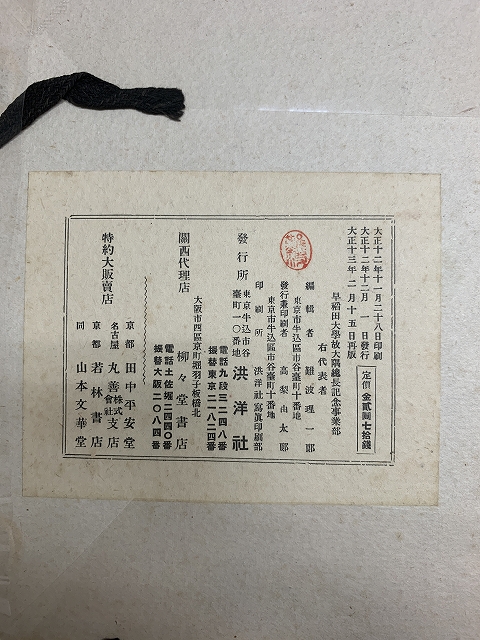 大正十二年十一月二十八日印刷
大正十二年十二月一日發行
大正十三年二月十五日再版
定價金貳圓七拾錢
早稻田大學故大隈總長記念事業部
右代表者
編輯者 難波理一郎
東京市牛込區市谷臺町十番地
發行兼印刷者 高梨由太郎
東京市牛込區市谷臺町十番地
印刷所 洪洋社寫眞印刷部
發行所 東京牛込市谷臺町一〇番地 洪洋社
電話九段三二四八番
振替東京二一八二四番
關西代理店 大阪市西區京町堀羽子板橋北 柳々堂書店
電話土佐堀二四四〇番
振替大阪二〇八四番
特約大販賣店
京都 田中平安堂
名古屋 丸善株式會社支店
京都 若林書店
同 山本文華堂